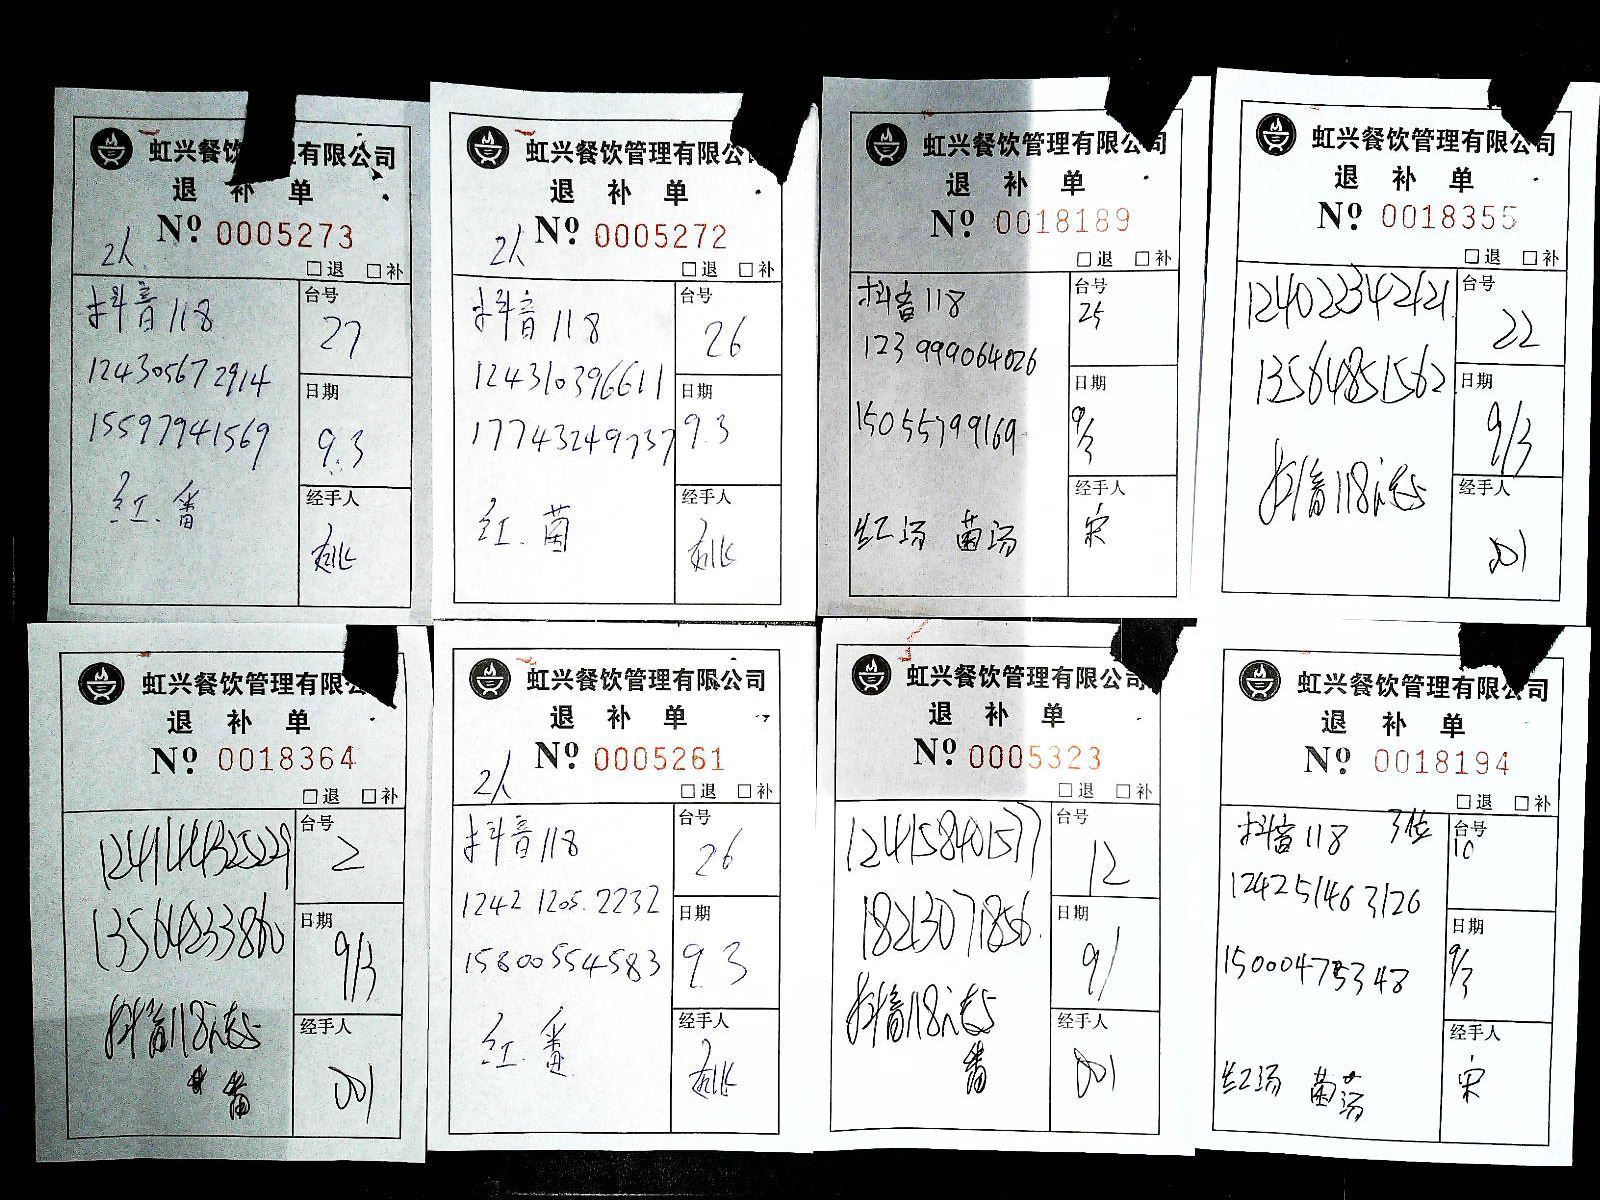 虹兴餐饮管理有限公司
退补单
№ 0005273
2人
□退 □补
抖音118
124305672914
15597941569
红.番
台号
27
日期
9.3
经手人
虹兴餐饮管理有限公
退补单
№ 0005272
2人
□退 □补
抖音118
124310396611
17743249737
红.菌
台号
26
日期
9.3
经手人
虹兴餐饮管理有限公司
退补单
№ 0018189
□退 □补
抖音118
123999064026
15055799169
红汤 菌汤
台号
25
日期
9/3
经手人
宋
虹兴餐饮管理有限公司
退补单
№ 0018355
□退 □补
124022342421
13564851562
抖音118
台号
22
日期
9/3
经手人
001
虹兴餐饮管理有限公
退补单
№ 0018364
□退 □补
124144325229
13564233860
抖音118
番
台号
2
日期
9/3
经手人
001
虹兴餐饮管理有限公司
退补单
№ 0005261
2人
□退 □补
抖音118
1242 1205.2232
15800554583
红.番
台号
26
日期
9.3
经手人
虹兴餐饮管理有限公司
退补单
№ 0005323
□退 □补
124158401577
18213071856.
抖音118
番
台号
12
日期
9/
经手人
001
虹兴餐饮管理有限公司
退补单
№ 0018194
□退 □补
抖音118 3位
124251463126
15000475348
红汤 菌汤
台号
10
日期
9/3
经手人
宋